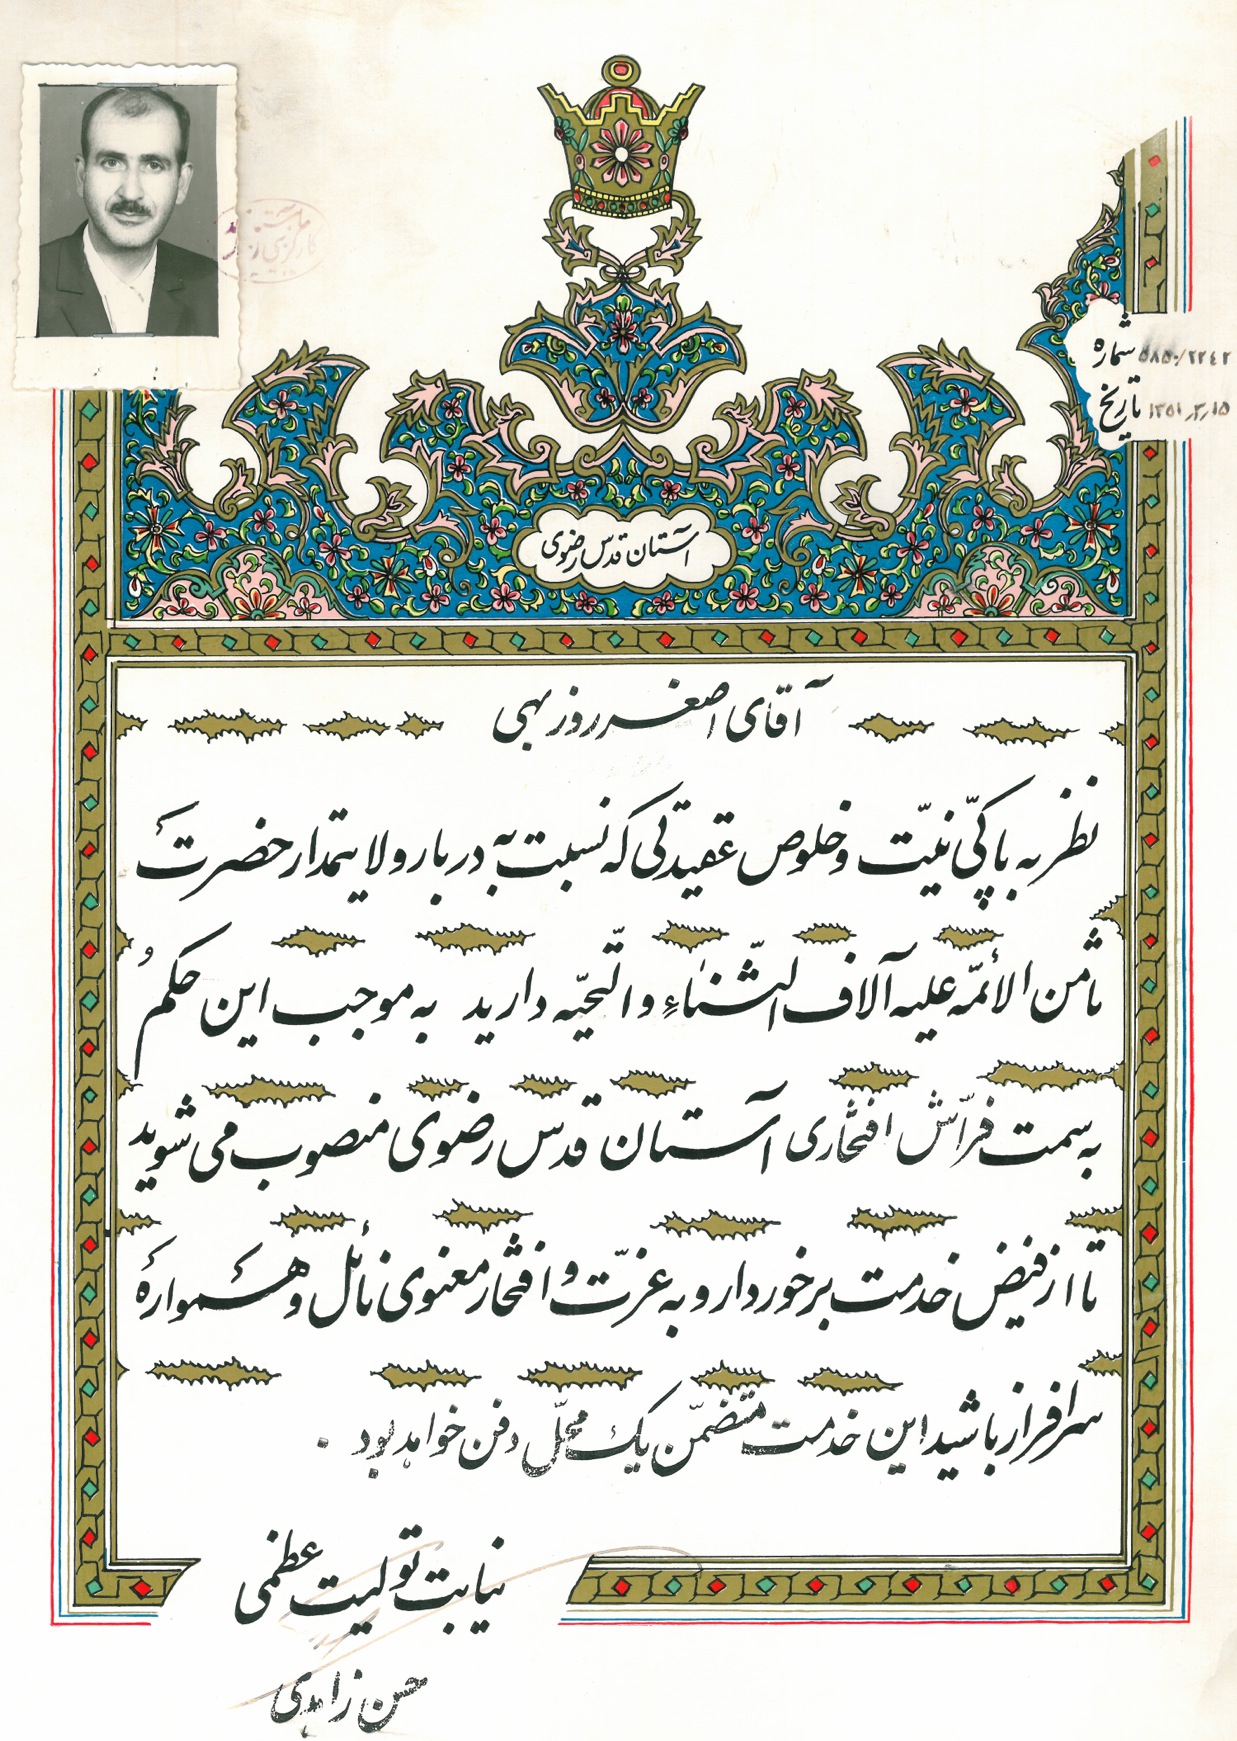 شماره ۵۸۵۰/۲۲۴۲
تاریخ ۱۳۵۱٫۳٫۱۵
آستان قدس رضوی
آقای اصغر روزبهی
نظر به پاکیّ نیّت و خلوص عقیدتی که نسبت به دربار ولایتمدار حضرت
ثامن الأئمّه علیه آلاف الثّناءِ و التّحیّه دارید به موجب این حکم
به سمت فرّاش افتخاری آستان قدس رضوی منصوب می شوید
تا از فیض خدمت برخوردار و به عزّت و افتخار معنوی نائل و همواره
سرافراز باشید این خدمت متضمّن یک محلّ دفن خواهد بود .
نیابت تولیت عظمی
حسن زاهدی